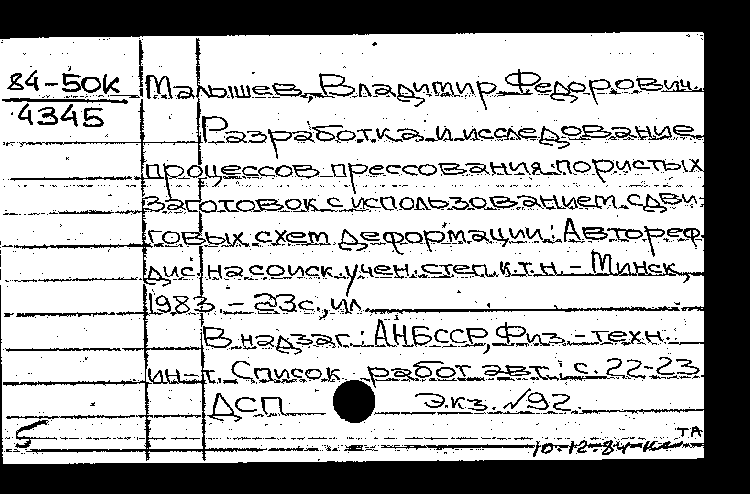 84-50К
4345
Малышев, Владимир Федорович.
Разработка и исследование
процессов прессования пористых
заготовок с использованием сдви-
говых схем деформации: Автореф.
дис. на соиск. учен. степ. к.т.н. - Минск,
1983. - 23с., ил.
В надзаг.: АН БССР, Физ.-техн.
ин-т. Список работ авт.: с. 22-23.
ДСП Экз. №92.
5
ТА
10-12-84-